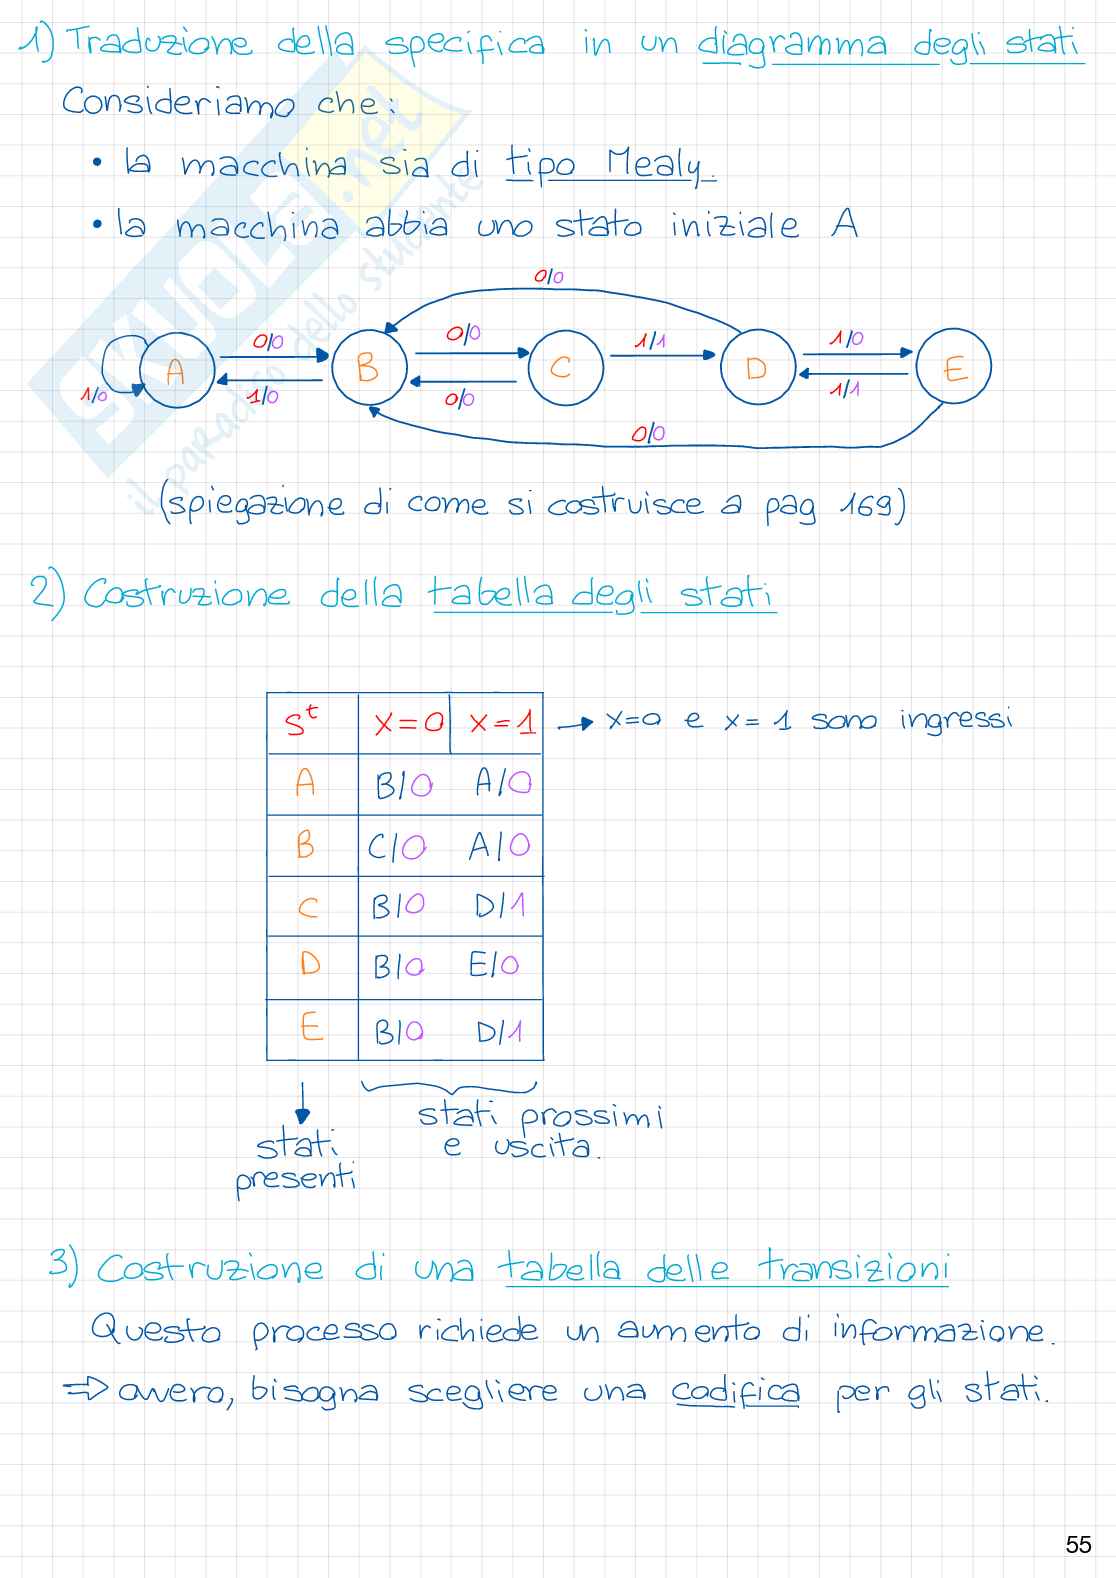 1) Traduzione della specifica in un diagramma degli stati
Consideriamo che:
• la macchina sia di tipo Mealy.
• la macchina abbia uno stato iniziale A
0/0
0/0 0/0 1/1 1/0
A B C D E
1/0 1/0 0/0 1/1
0/0
(spiegazione di come si costruisce a pag 169)
2) Costruzione della tabella degli stati
Sᵗ X=0 X=1 → X=0 e X=1 sono ingressi
A B/0 A/0
B C/0 A/0
C B/0 D/1
D B/0 E/0
E B/0 D/1
stati prossimi
e uscita.
stati
presenti
3) Costruzione di una tabella delle transizioni
Questo processo richiede un aumento di informazione.
⇒ ovvero, bisogna scegliere una codifica per gli stati.
55
SKUOLA.net
il paradiso dello studente